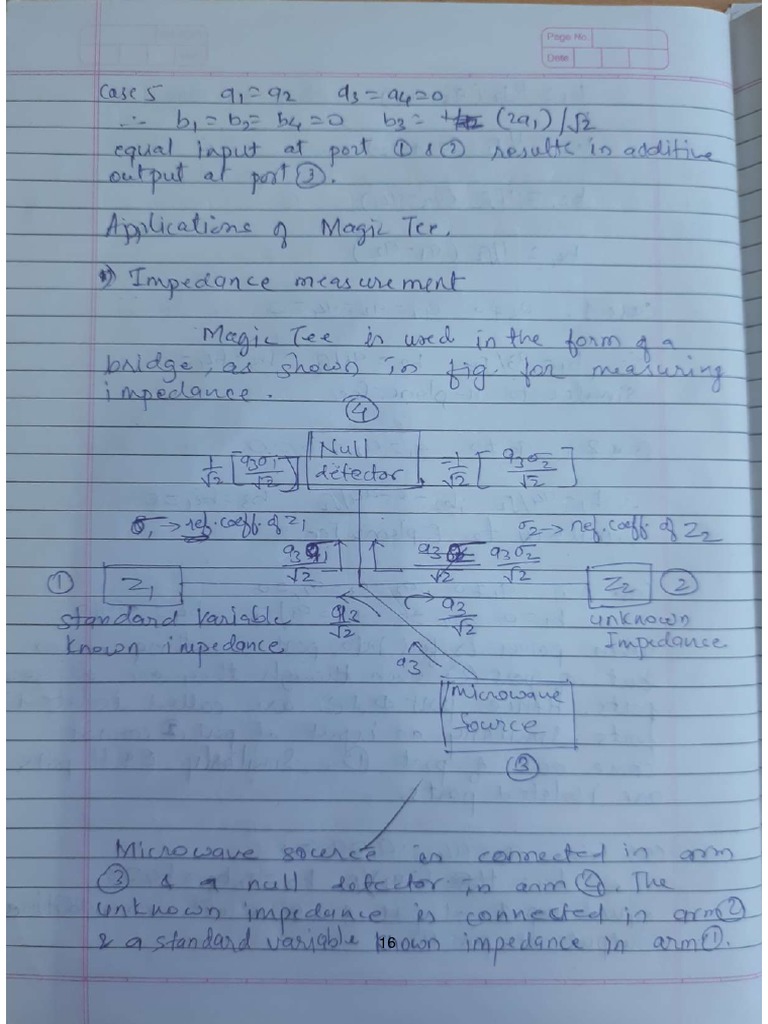 Page No
Date
Case 5 a1 = a2 a3 = a4 = 0
∴ b1 = b2 = b4 = 0 b3 = (2a1)/√2
equal input at port ① & ② results in additive
output at port ③.
Applications of Magic Tee.
1) Impedance measurement
Magic Tee is used in the form of a
bridge, as shown in fig. for measuring
impedance.
④
1/√2 [a3σ1/√2] Null detector -1/√2 [a3σ2/√2]
σ1 → ref. coeff. of Z1 σ2 → ref. coeff of Z2
a3σ1/√2 a3σ2/√2
① Z1 Z2 ②
standard variable a3/√2 a3/√2 unknown
known impedance Impedance
a3
Microwave
Source
③
Microwave source is connected in arm
③ & a null detector in arm ④. The
unknown impedance is connected in arm ②
& a standard variable known impedance in arm ①.
16